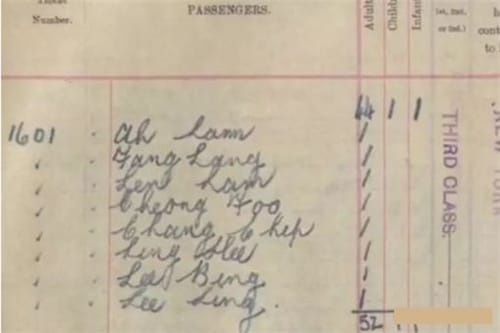 Number.
PASSENGERS.
Adult
Child
Infant
1st, 2nd,
or 3rd.)
44 1 1
1601 Ah Lam 1
Fang Lang 1
Len Lam 1
Cheong Foo 1
Chang Chip 1
Ling Hee 1
Lee Bing 1
Lee Ling. 1
52 1 1
THIRD CLASS.